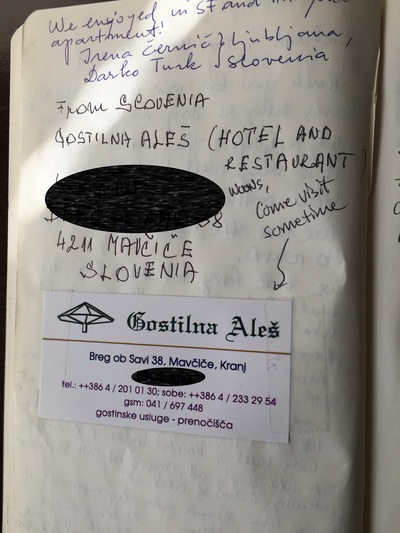 We enjoyed in SF and in your
apartment!
Irena Černič, Ljubljana,
Darko Turk, Slovenia
FROM SLOVENIA
GOSTILNA ALEŠ (HOTEL AND
RESTAURANT)
Come visit
sometime
4211 MAVČIČE
SLOVENIA
Gostilna Aleš
Breg ob Savi 38, Mavčiče, Kranj
tel.: ++386 4 / 201 01 30; sobe; ++386 4 / 233 29 54
gsm: 041 / 697 448
gostinske usluge - prenočišča